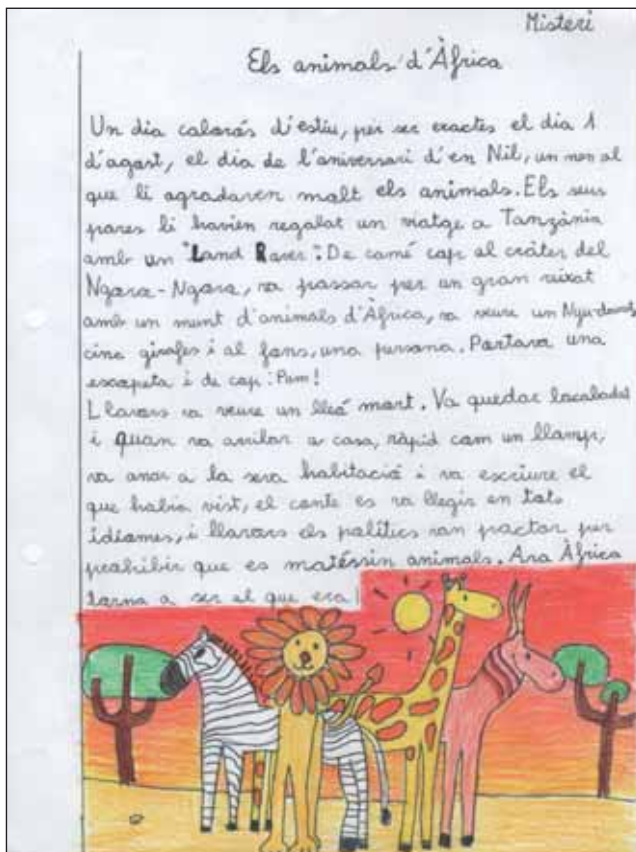 Misteri
Els animals d'Àfrica
Un dia calorós d'estiu, per ser exactes el dia 1
d'agost, el dia de l'aniversari d'en Nil, un nen al
que li agradaven molt els animals. Els seus
pares li havien regalat un viatge a Tanzània
amb un "Land Rover". De camí cap al cràter del
Ngoro-Ngoro, va passar per un gran ruixat
amb un munt d'animals d'Àfrica, va veure un Nyu
cinc girafes i al fons, una persona. Portava una
escopeta i de cop: Pum!
Llavors va veure un lleó mort. Va quedar
i quan va arribar a casa, ràpid com un llamp,
va anar a la seva habitació i va escriure el
que havia vist, el conte es va llegir en tots
idiomes, i llavors els polítics van pactar per
prohibir que es matéssin animals. Ara Àfrica
torna a ser el que era!